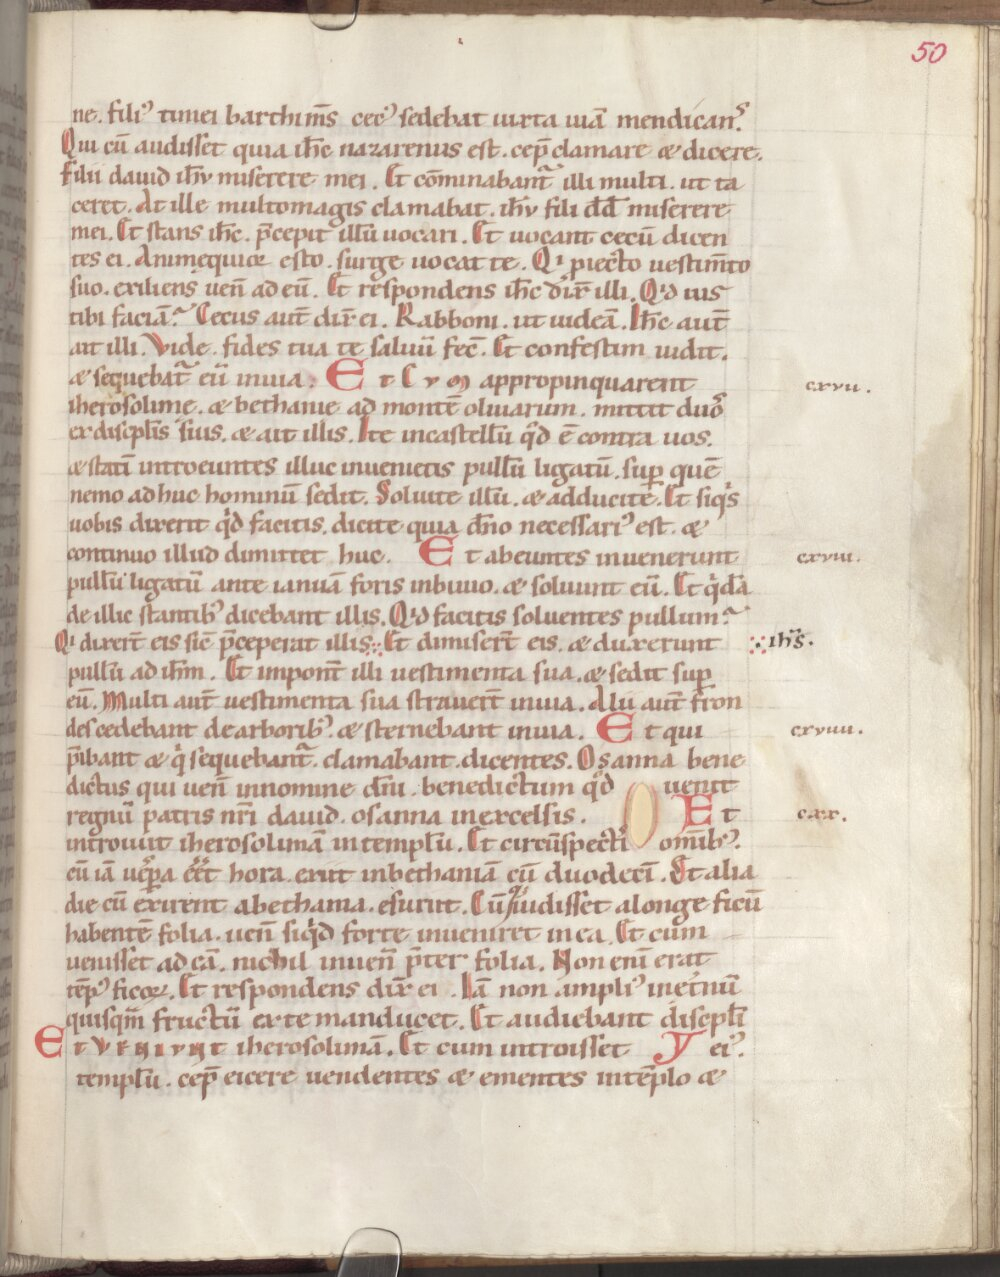 50
ne. filiꝰ timei barthim̅s cecꝰ sedebat iuxta uiā mendicanſ.
Qui cū audisset quia ih̅c nazarenus est. cep̅ clamare & dicere.
Filii dauid ih̅u miserere mei. Et cōminabant̅ illi multi. ut ta
ceret. At ille multomagis clamabat. ih̅u fili d̅d miserere
mei. Et stans ih̅c. p̅cepit illū uocari. Et uocant cecū dicen
tes ei. Animequior esto. surge uocat te. Qi piecto uestim̅to
suo. exiliens uen̅ ad eū. Et respondens ih̅c dix̅ illi. Qid uis
tibi faciā? Cecus aut̅ dix̅ ei. Rabboni. ut uideā. Ih̅c aut̅
ait illi. Vide. fides tua te saluū fec̅. Et confestim uidit.
& sequebat̅ eū inuia. Et Cum appropinquarent
cxvii.
iherosolime. & bethanie ad montē oliuarum. mittit duoſ
ex discipl̅is suis. & ait illis. Ite incastellū q̊d ē contra uos.
& statī introeuntes illuc inuenietis pullū ligatū. sup̱ quē
nemo adhuc hominū sedit. Soluite illū. & adducite. Et siqͥs
uobis dixerit qͥd facitis. dicite quia dn̅o necessariꝰ est. &
continuo illud dimittet huc. Et abeuntes inuenerunt
cxviii.
pullū ligatū ante ianuā foris inbiuio. & soluunt eū. Et qͥdā
de illic stantibꝰ dicebant illis. Qid facitis soluentes pullum?
Qi dixert̅ eis sic̅ p̅ceperat illis. Et dimisert̅ eis. & duxerunt
ih̅s.
pullū ad ih̅m. Et impont̅ illi uestimenta sua. & sedit sup̱
eū. Multi aut̅ uestimenta sua strauert̅ inuia. Alii aut̅ fron
des cedebant de arboribꝰ. & sternebant inuia. Et qui
cxviiii.
p̅ibant & qͥ sequebant̅. clamabant. dicentes. Osanna bene
dictus qui uen̅ innomine dn̅i. benedictum q̊d uenit
regnū patris nr̅i dauid. osanna inexcelsis. Et
cxx.
introiuit iherosolimā intemplū. Et circūspectiſ omībꝰ.
cū iā uesp̱a eēt hora. exiit inbethaniā cū duodecī. Et alia
die cū exirent abethania. esuriit. Cūq; uidisset alonge ficū
habentē folia. uen̅ siqͥd forte inueniret in ea. Et cum
uenisset ad eā. nichil inuen̅ p̅ter folia. Non enī erat
tēpꝰ ficoꝝ. Et respondens dix̅ ei. Iā non ampliꝰ inet̅nū
quisqm̅ fructū exte manducet. Et audiebant discipl̅i
Et Veniunt iherosolimā. Et cum introisset eiꝰ.
templū. cep̅ eicere uendentes & ementes intēplo &